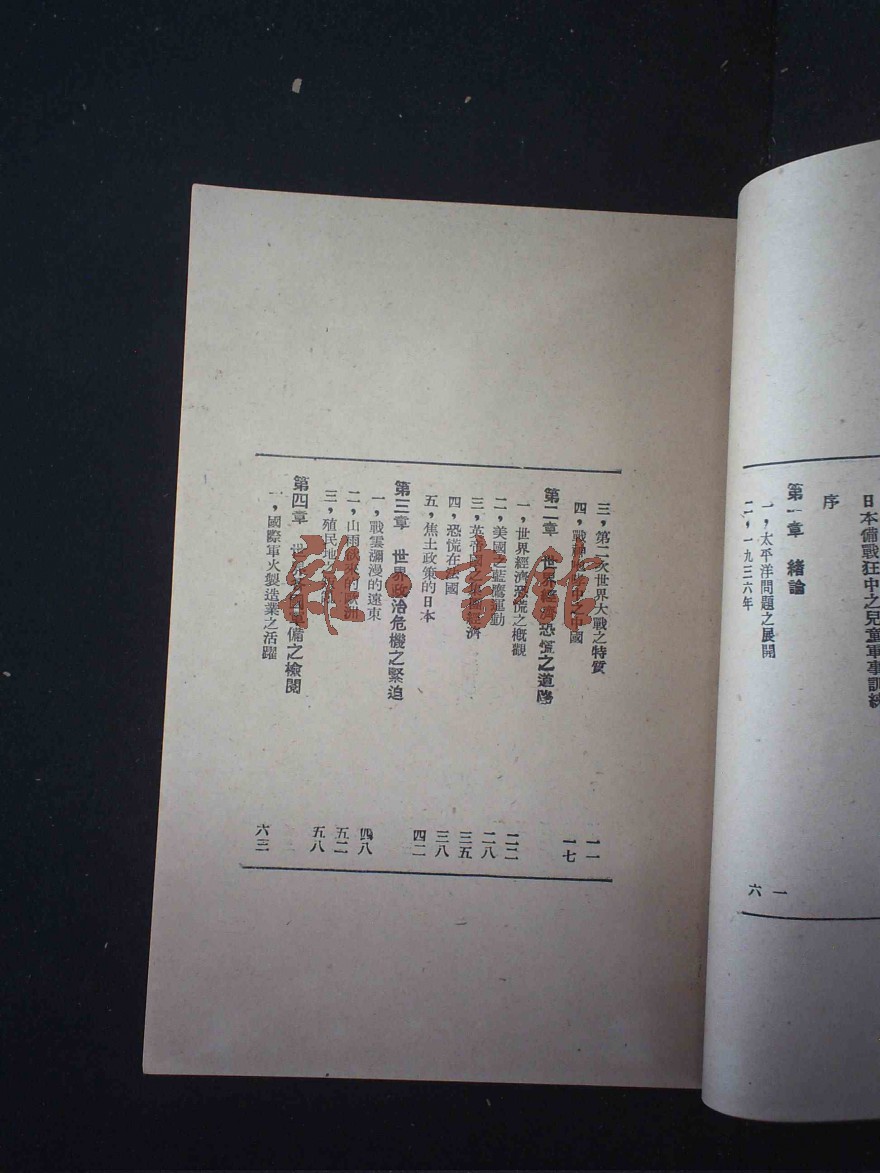 日本備戰狂中之兒童軍事訓練
序
第一章 緒論
一，太平洋問題之展開 一
二，一九三六年 六
三，第二次世界大戰之特質 一一
四，戰神 中之中國 一七
第二章 世界經濟恐慌之道路
一，世界經濟恐慌之槪觀 二二
二，美國之藍鷹運動 二八
三，英帝國之 經濟 三五
四，恐慌在法國 三八
五，焦土政策的日本 四二
第三章 世界政治危機之緊迫
一，戰雲瀰漫的遠東 四八
二，山雨欲來 歐洲 五二
三，殖民地之 五八
第四章 世界各國軍備之檢閱
一，國際軍火製造業之活躍 六三